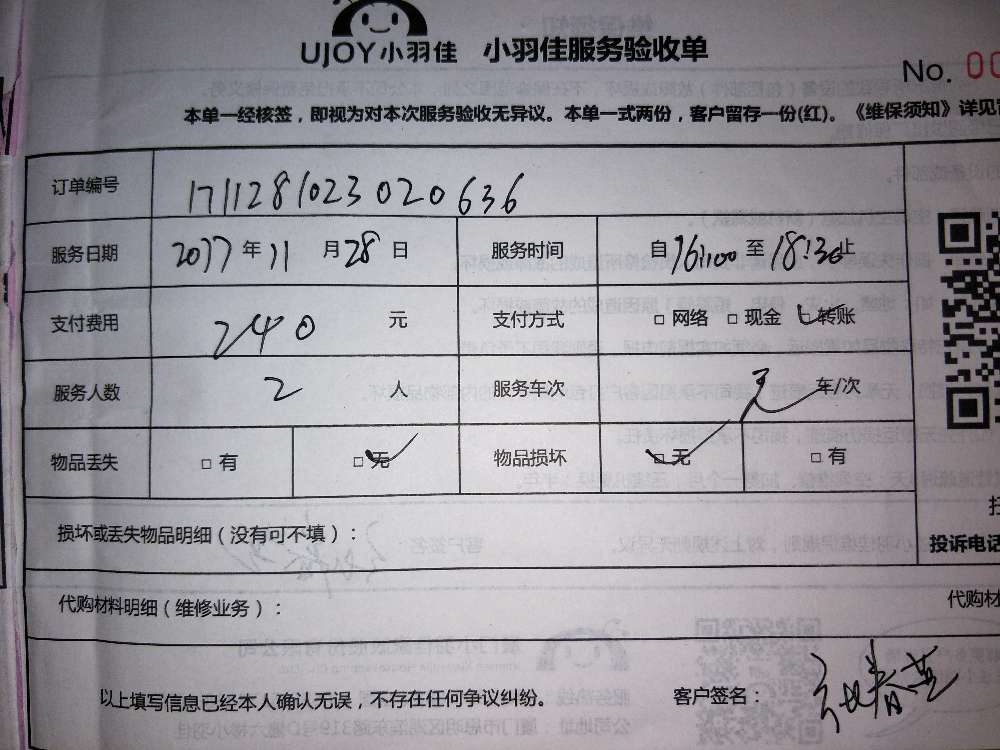 UJOY小羽佳 小羽佳服务验收单
No. 00
本单一经核签，即视为对本次服务验收无异议。本单一式两份，客户留存一份(红)。《维保须知》详见
订单编号 1711281023020636
服务日期 2017年11月28日 服务时间 自16:00至18:30止
支付费用 240元 支付方式 □网络 □现金 □转账
服务人数 2人 服务车次 车/次
物品丢失 □有 □无 物品损坏 □无 □有
损坏或丢失物品明细（没有可不填）：
投诉电话
代购材料明细（维修业务）： 代购材
以上填写信息已经本人确认无误，不存在任何争议纠纷。 客户签名：